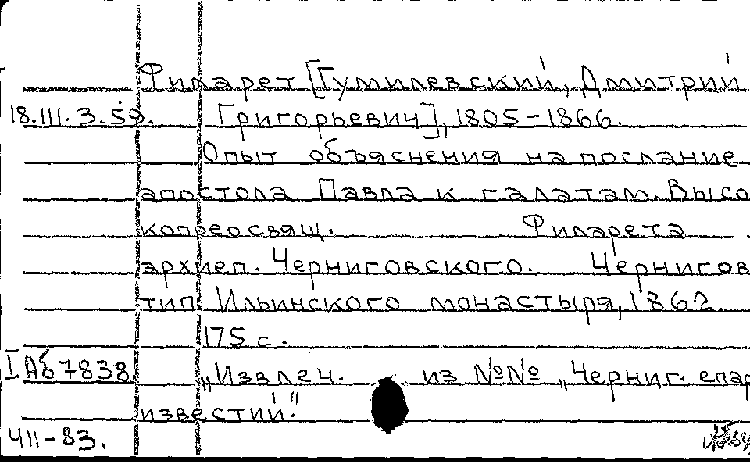 Филарет [Гумилевский, Дмитрий
18.III.3.59. Григорьевич], 1805-1866.
Опыт объяснения на послание
апостола Павла к галатам. Высо
копреосвящ. Филарета
архиеп. Черниговского. Чернигов
тип. Ильинского монастыря, 1862
175 с.
I Аб 7838 „Извлеч. из №№ „Черниг. епар
известий."
411-83.